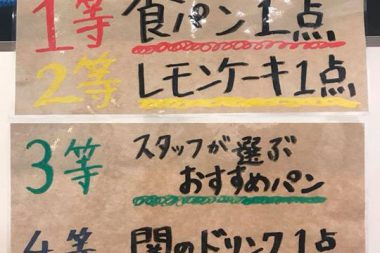 1等 食パン1点
2等 レモンケーキ1点
3等 スタッフが選ぶ
おすすめパン
4等 関のドリンク1点